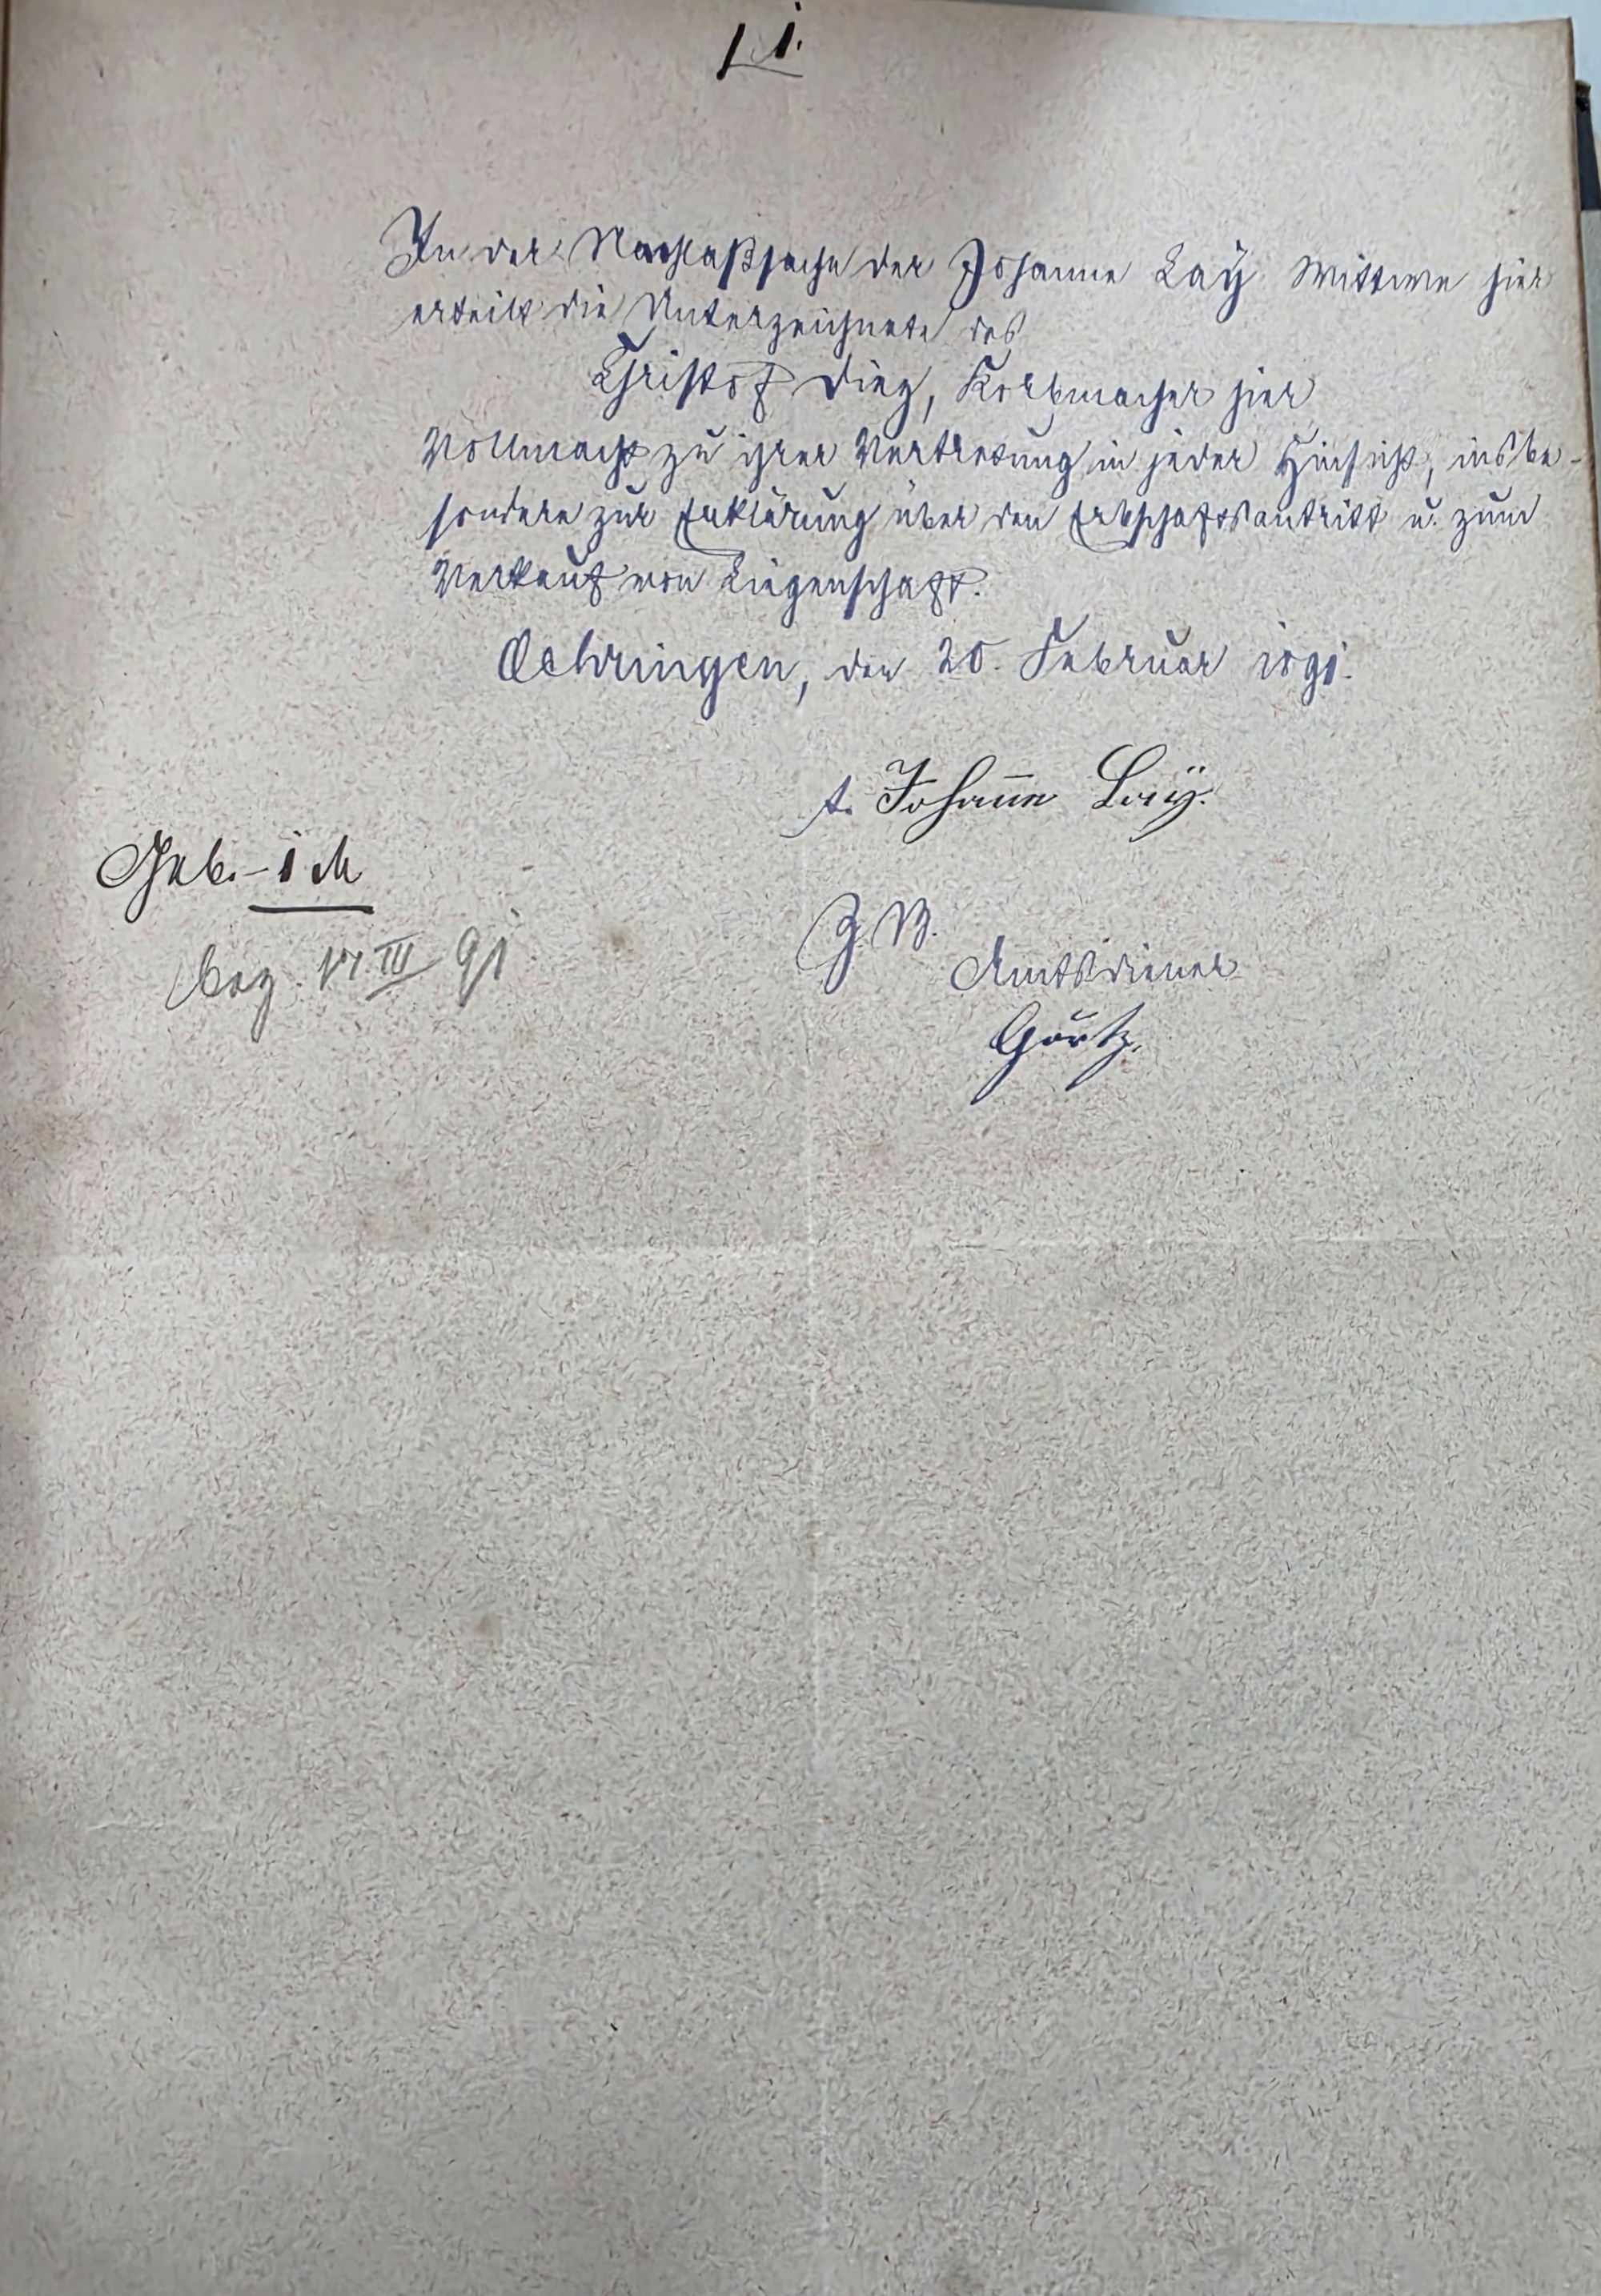 In der Nachlaßsache der Johanne Laÿ Wittwe hier
erteilt die Unterzeichnete des
Christof Diez, Korbmacher hier
Vollmacht zu ihrer Vertretung in jeder Hinsicht, insbe-
sondere zur Erklärung über den Erbschaftsantritt u. zum
Verkauf von Liegenschaft.
Oehringen, den 20. Februar 1891.
t. Johanne Laÿ.
Geb. - 1 M
Z. B.
bez. 17. III 91
Amtsdiener
Görtz.